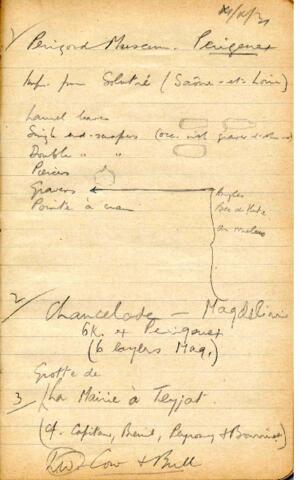 1/ Périgord Museum. Périgueux
Imp. from Solutré (Saône-et-Loire)
Laurel leaves
Single end-scrapers (occ. with graver
Double " "
Pierces
Gravers
Angles
Bec de flute
Pointe à cran
2/ Chancelade — Magdalenian
6K. Périgueux
(6 layers Mag.)
Grotte de
3/ La Mairie à Teyjat.
(cf. Capitan, Breuil, Peyrony &
Cow & Bull